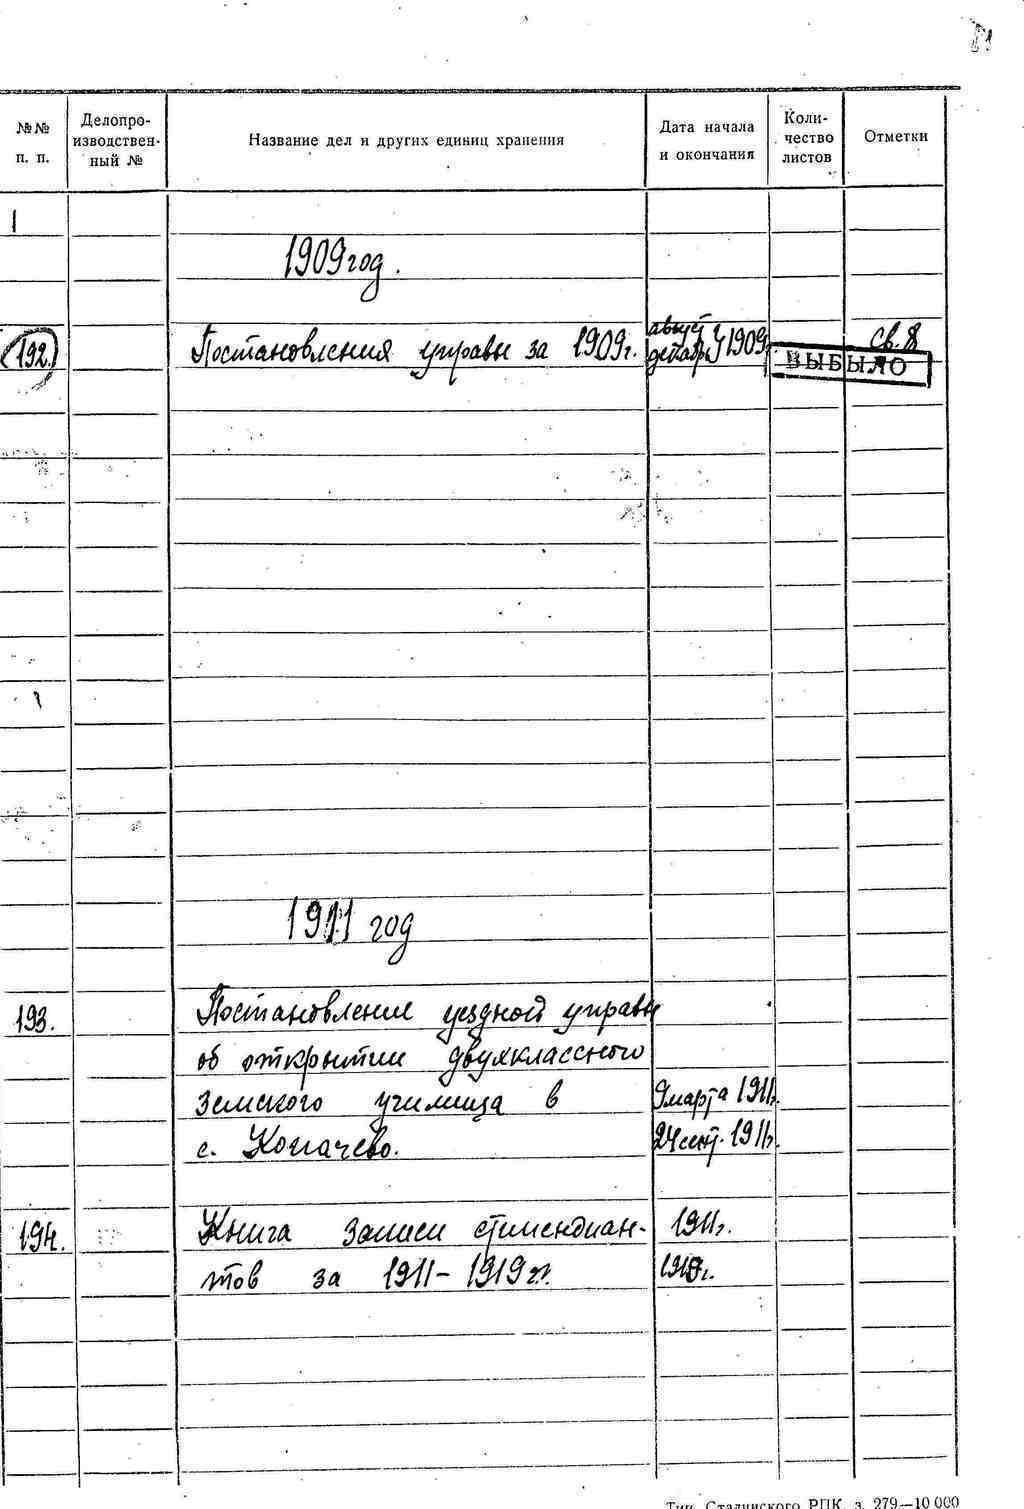 №№ п. п.
Делопро-
изводствен-
ный №
Название дел и других единиц хранения
Дата начала
и окончания
Коли-
чество
листов
Отметки
1909 год.
192.
Постановления управы за 1909 г.
август
декабрь 1909
Св. 8
ВЫБЫЛО
1911 год
193.
Постановление уездной управы
об открытии двухклассного
земского училища в
с.
9 марта 1911г.
24 сент. 1911г.
194.
Книга записи стипендиан-
тов за 1911-1919 гг.
1911г.
1919г.
Тип. Сталинского РПК. з. 279—10 000